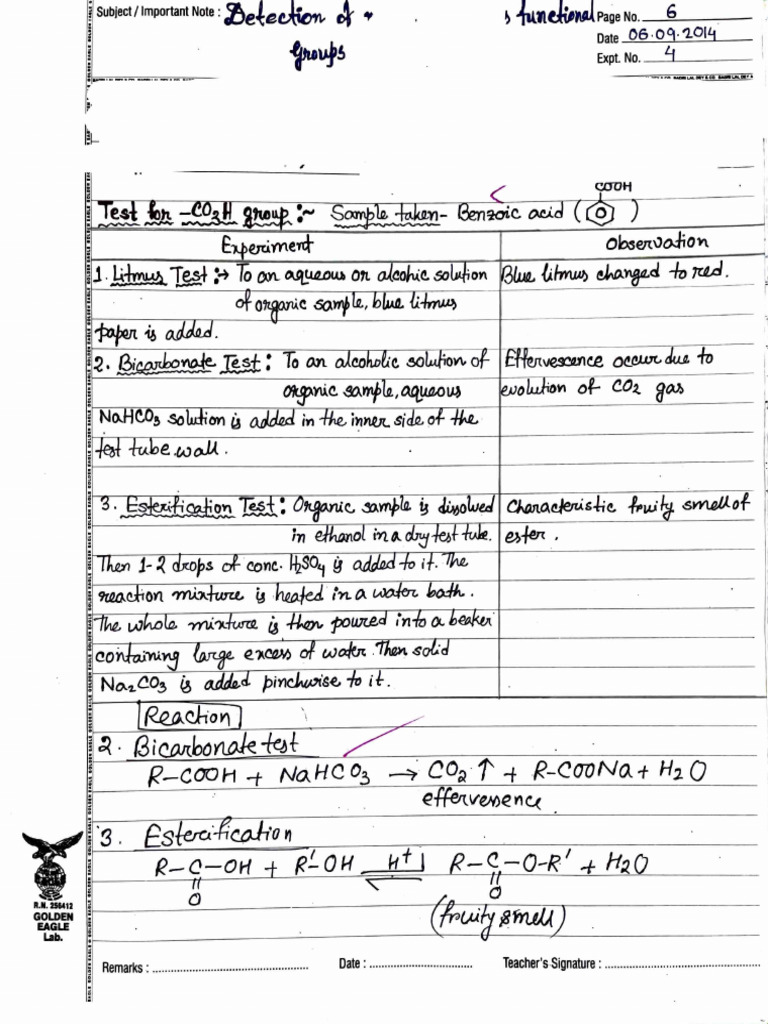 Subject / Important Note : Detection of
, functional
Groups
Page No. 6
Date 06.09.2014
Expt. No. 4
Test for -CO2H group :~ Sample taken- Benzoic acid ( )
COOH
Experiment
Observation
1. Litmus Test :→ To an aqueous or alcohic solution
of organic sample, blue litmus
paper is added.
Blue litmus changed to red.
2. Bicarbonate Test : To an alcoholic solution of
organic sample, aqueous
NaHCO3 solution is added in the inner side of the
test tube wall.
Effervescence occur due to
evolution of CO2 gas
3. Esterification Test : Organic sample is dissolved
in ethanol in a dry test tube.
Then 1-2 drops of conc. H2SO4 is added to it. The
reaction mixture is heated in a water bath.
The whole mixture is then poured into a beaker
containing large excess of water. Then solid
Na2CO3 is added pinchwise to it.
Characteristic fruity smell of
ester.
Reaction
2. Bicarbonate test
R-COOH + NaHCO3 → CO2 ↑ + R-COONa + H2O
effervensence
3. Esterification
R-C-OH + R'-OH ⇌ H+ R-C-O-R' + H2O
O O
(fruity smell)
EAGLE
R.N. 256412
GOLDEN
EAGLE
Lab.
Remarks :
Date :
Teacher's Signature :